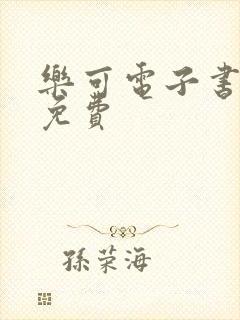 樂可電子書
免費
孫荣海